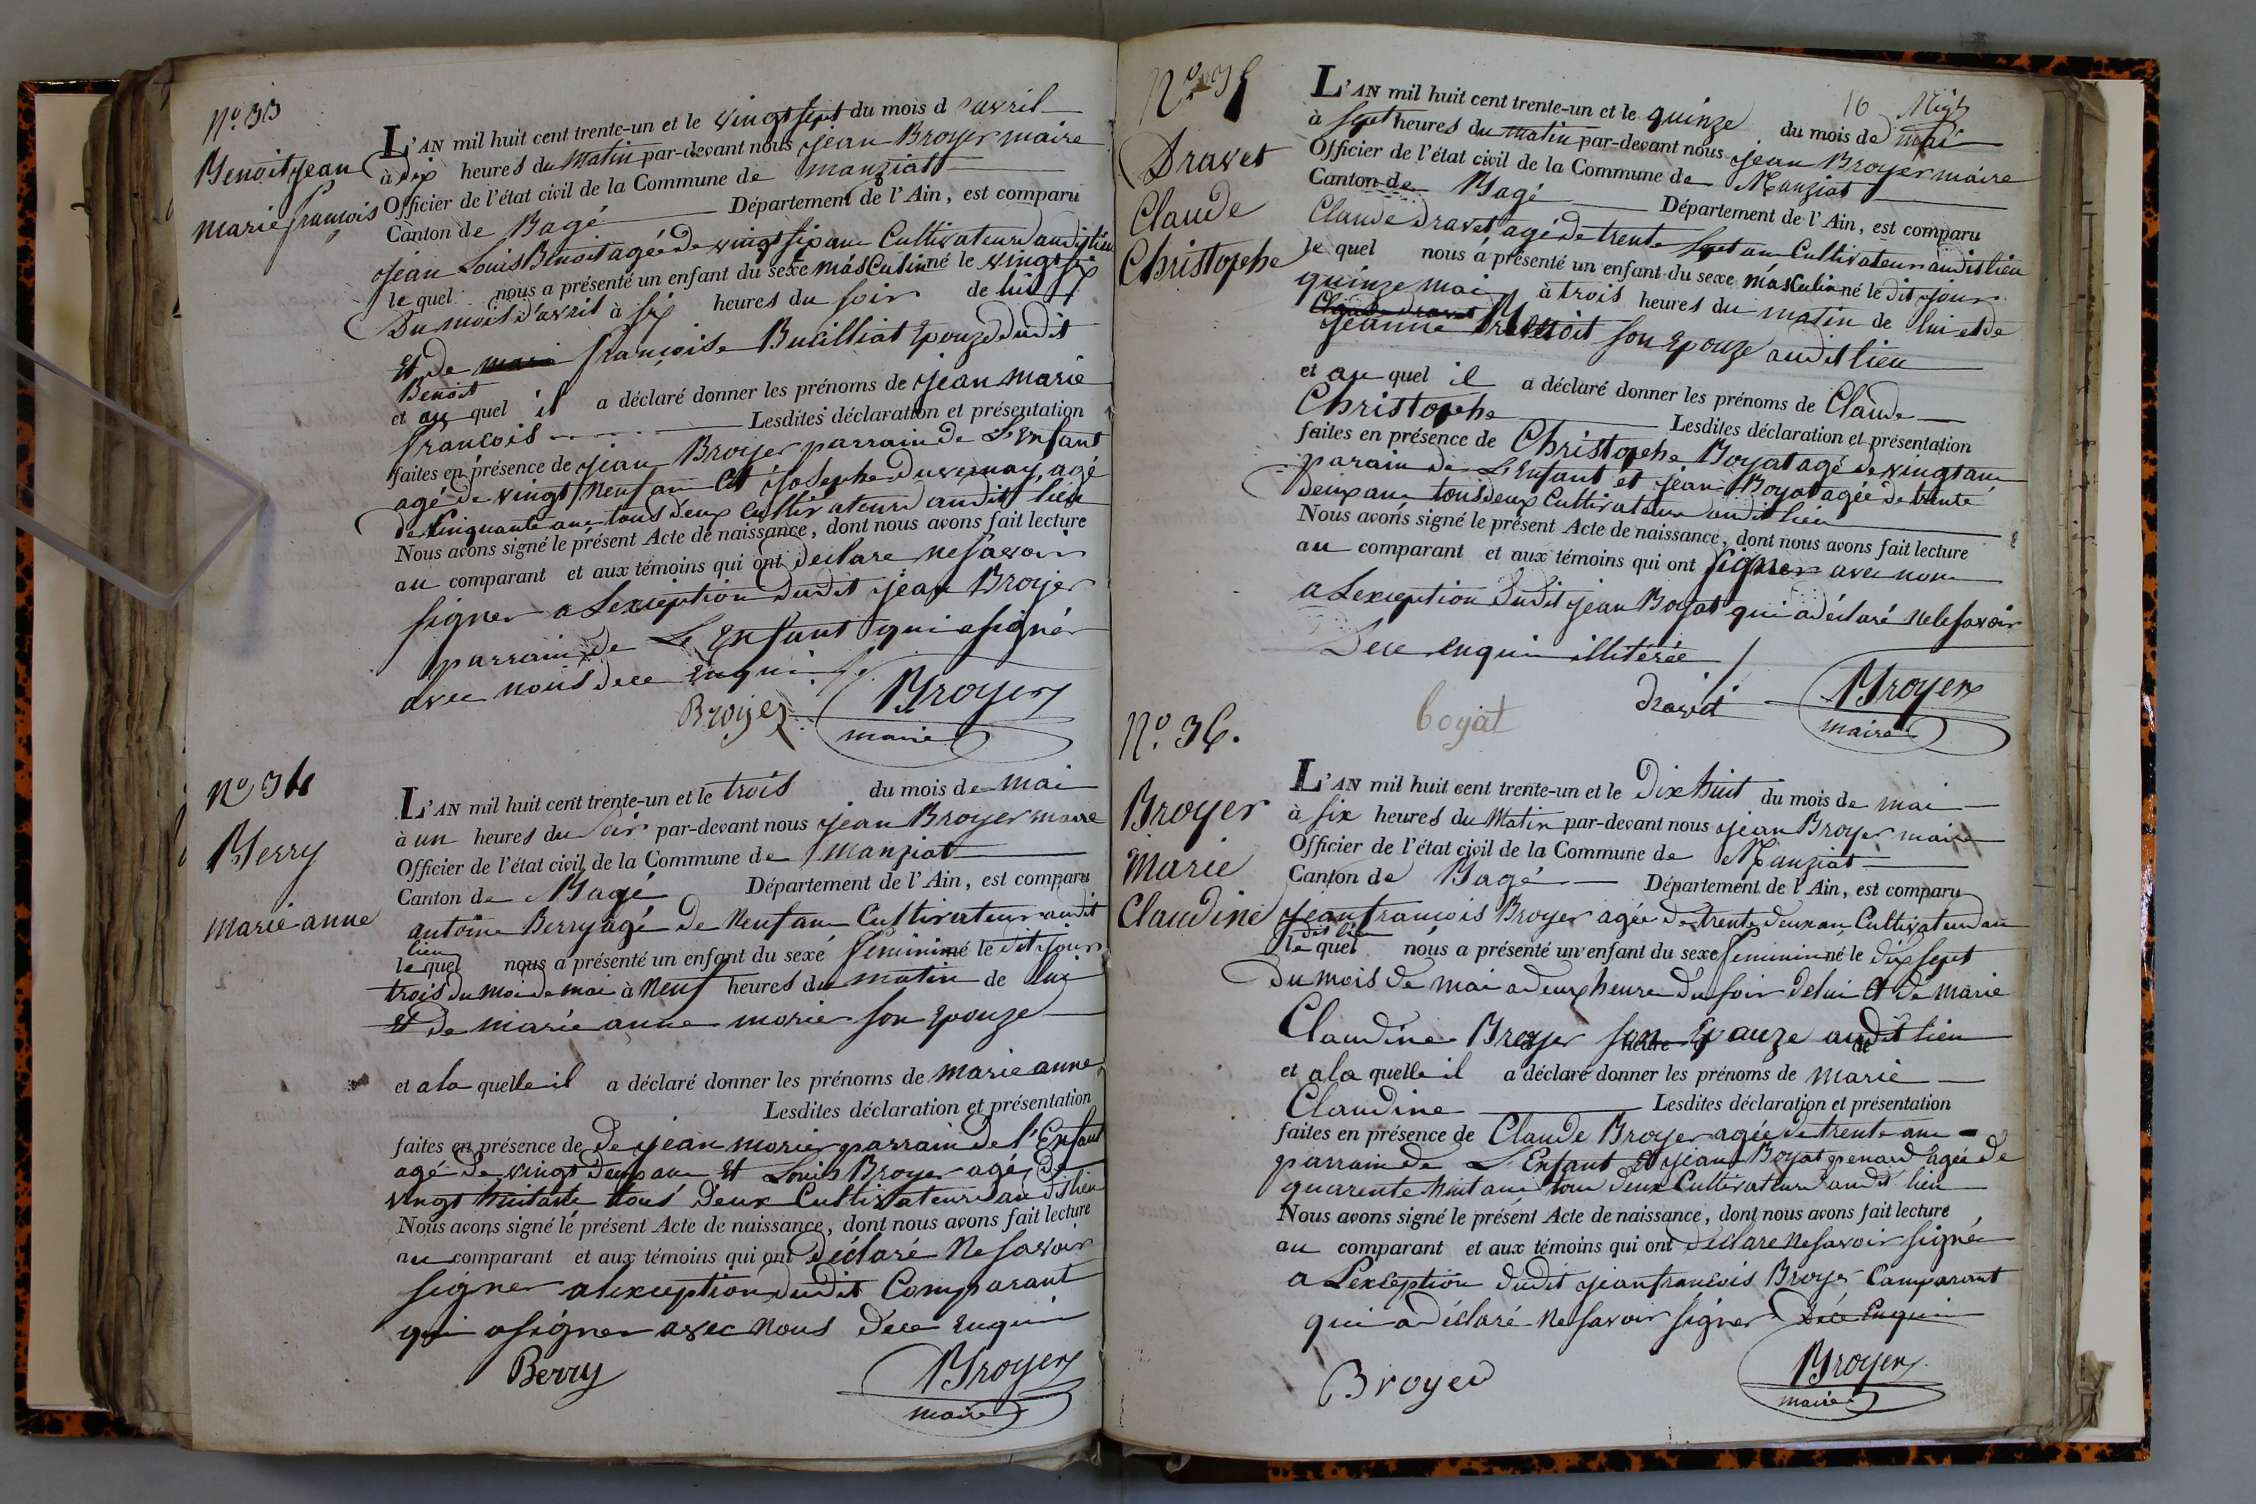 No. 33
Benoit jean
marie françois
L'AN mil huit cent trente-un et le vingt sept du mois d'avril
à dix heures du matin par-devant nous jean Broyer maire
Officier de l'état civil de la Commune de manziat
Canton de Bagé Département de l'Ain, est comparu
jean Louis Benoit agée de vingt six ans Cultivateur audit lieu
le quel nous a présenté un enfant du sexe masculin né le vingt six
Du mois d'avril à six heures du soir de lui
Et de françoise Bucilliat Epouze dudit
Benoit
et au quel il a déclaré donner les prénoms de jean marie
francois Lesdites déclaration et présentation
faites en présence de jean Broyer parrain de L'enfant
agé de vingt neuf ans Et josephe duvernay agé
de Cinquante ans tous deux Cultivateurs audit lieu
Nous avons signé le présent Acte de naissance, dont nous avons fait lecture
au comparant et aux témoins qui ont declare ne savoir
signer a Lexception dudit jean Broyer
parrain de L'Enfant qui a signér
avec nous de ce enquis
Broyer Broyer
maire
No 34
Berry
marie anne
L'AN mil huit cent trente-un et le trois du mois de mai
à un heures du soir par-devant nous jean Broyer maire
Officier de l'état civil de la Commune de manziat
Canton de Bagé Département de l'Ain, est comparu
antoine Berry agé de Neuf ans Cultivateur audit
lieu
le quel nous a présenté un enfant du sexe feminin né le dit jour
trois du moi de mai à neuf heures du matin de lui
Et de marie anne morier son Epouze
et a la quelle il a déclaré donner les prénoms de marie anne
Lesdites déclaration et présentation
faites en présence de de jean morier parrain de l'Enfant
agé de vingt deux ans Et Louis Broyer agé de
vingt huit ans tous deux Cultivateurs audit lieu
Nous avons signé le présent Acte de naissance, dont nous avons fait lecture
au comparant et aux témoins qui ont déclaré Ne savoir
signer alexception dudit Comparant
qui a signer avec nous de ce enquis
Berry Broyer
maire
No. 35
Dravet
Claude
Christophe
L'AN mil huit cent trente-un et le quinze du mois de mai
à sept heures du matin par-devant nous jean Broyer maire
Officier de l'état civil de la Commune de Manziat
Canton de Bagé Département de l'Ain, est comparu
Claude Dravet agé de trente sept ans Cultivateur audit lieu
le quel nous à présenté un enfant du sexe masculin né le dit jour
quinze mai à trois heures du matin de lui et de
Claude Dravet
jeanne Benoit son Epouze audit lieu
et au quel il a déclaré donner les prénoms de Claude
Christophe Lesdites déclaration et présentation
faites en présence de Christophe Boyat agé de vingt ans
parain de L'Enfant et jean Boyat agée de trente
deux ans tous deux Cultivateur audit lieu
Nous avons signé le présent Acte de naissance, dont nous avons fait lecture
au comparant et aux témoins qui ont signer avec nous
a Lexception dudit jean Boyat qui a déclaré ne le savoir
De ce enquis illitérée
boyat dravet Broyer
maire
No. 36.
Broyer
Marie
Claudine
L'AN mil huit cent trente-un et le Dix huit du mois de mai
à six heures du Matin par-devant nous jean Broyer maire
Officier de l'état civil de la Commune de Manziat
Canton de Bagé Département de l'Ain, est comparu
jean francois Broyer agée de trente deux ans Cultivateur au
dit lieu
le quel nous a présenté un enfant du sexe feminin né le dix sept
Du mois de mai a deux heures du soir de lui Et de marie
Claudine Broyer son Epouze audit lieu
et a la quelle il a déclaré donner les prénoms de marie
Claudine Lesdites déclaration et présentation
faites en présence de Claude Broyer agée de trente ans
parrain de L'Enfant Et jean Boyat penard agée de
quarente huit ans tous deux Cultivateurs audit lieu
Nous avons signé le présent Acte de naissance, dont nous avons fait lecture
au comparant et aux témoins qui ont déclare Ne savoir signée
a Lexception dudit jean francois Broyer Comparant
qui a déclaré Ne savoir signer De ce Enquis
Broyer Broyer
maire